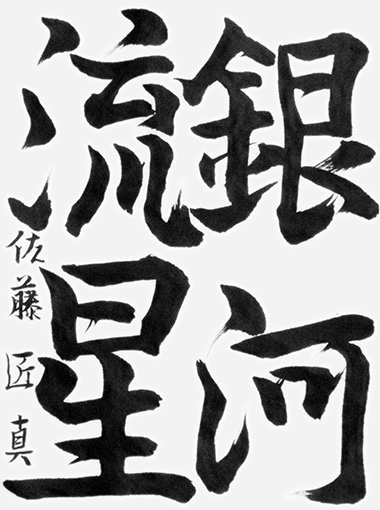 銀河
流星
佐藤匠真